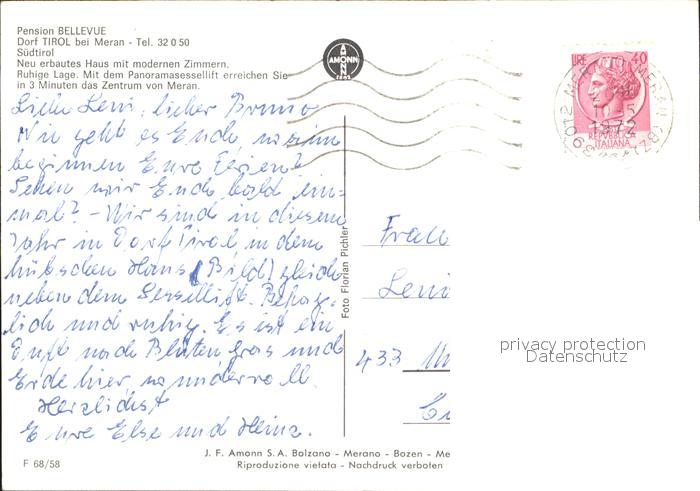 Pension BELLEVUE
Dorf TIROL bei Meran - Tel. 32 0 50
Südtirol
Neu erbautes Haus mit modernen Zimmern.
Ruhige Lage. Mit dem Panoramasessellift erreichen Sie
in 3 Minuten das Zentrum von Meran.
AMONN
LIRE 40
39012 MERANO MERAN (BZ)
1972
REPVBBLICA
ITALIANA
Liebe Leni, lieber Bruno
Wie geht es Euch, wann
beginnen Eure Ferien?
Sehen wir Euch bald ein=
mal? - Wir sind in diesem
Jahr in Dorf Tirol in dem
hübschen Haus (Bild) gleich
neben dem Sessellift. Behag-
lich und ruhig. Es ist ein
Duft nach Blüten, gras und
Erde hier, wundervoll.
Herzlichst
Eure Else und Heinz.
Foto Florian Pichler
Frau
Leni
433
privacy protection
Datenschutz
J. F. Amonn S.A. Bolzano - Merano - Bozen - Me
F 68/58
Riproduzione vietata - Nachdruck verboten